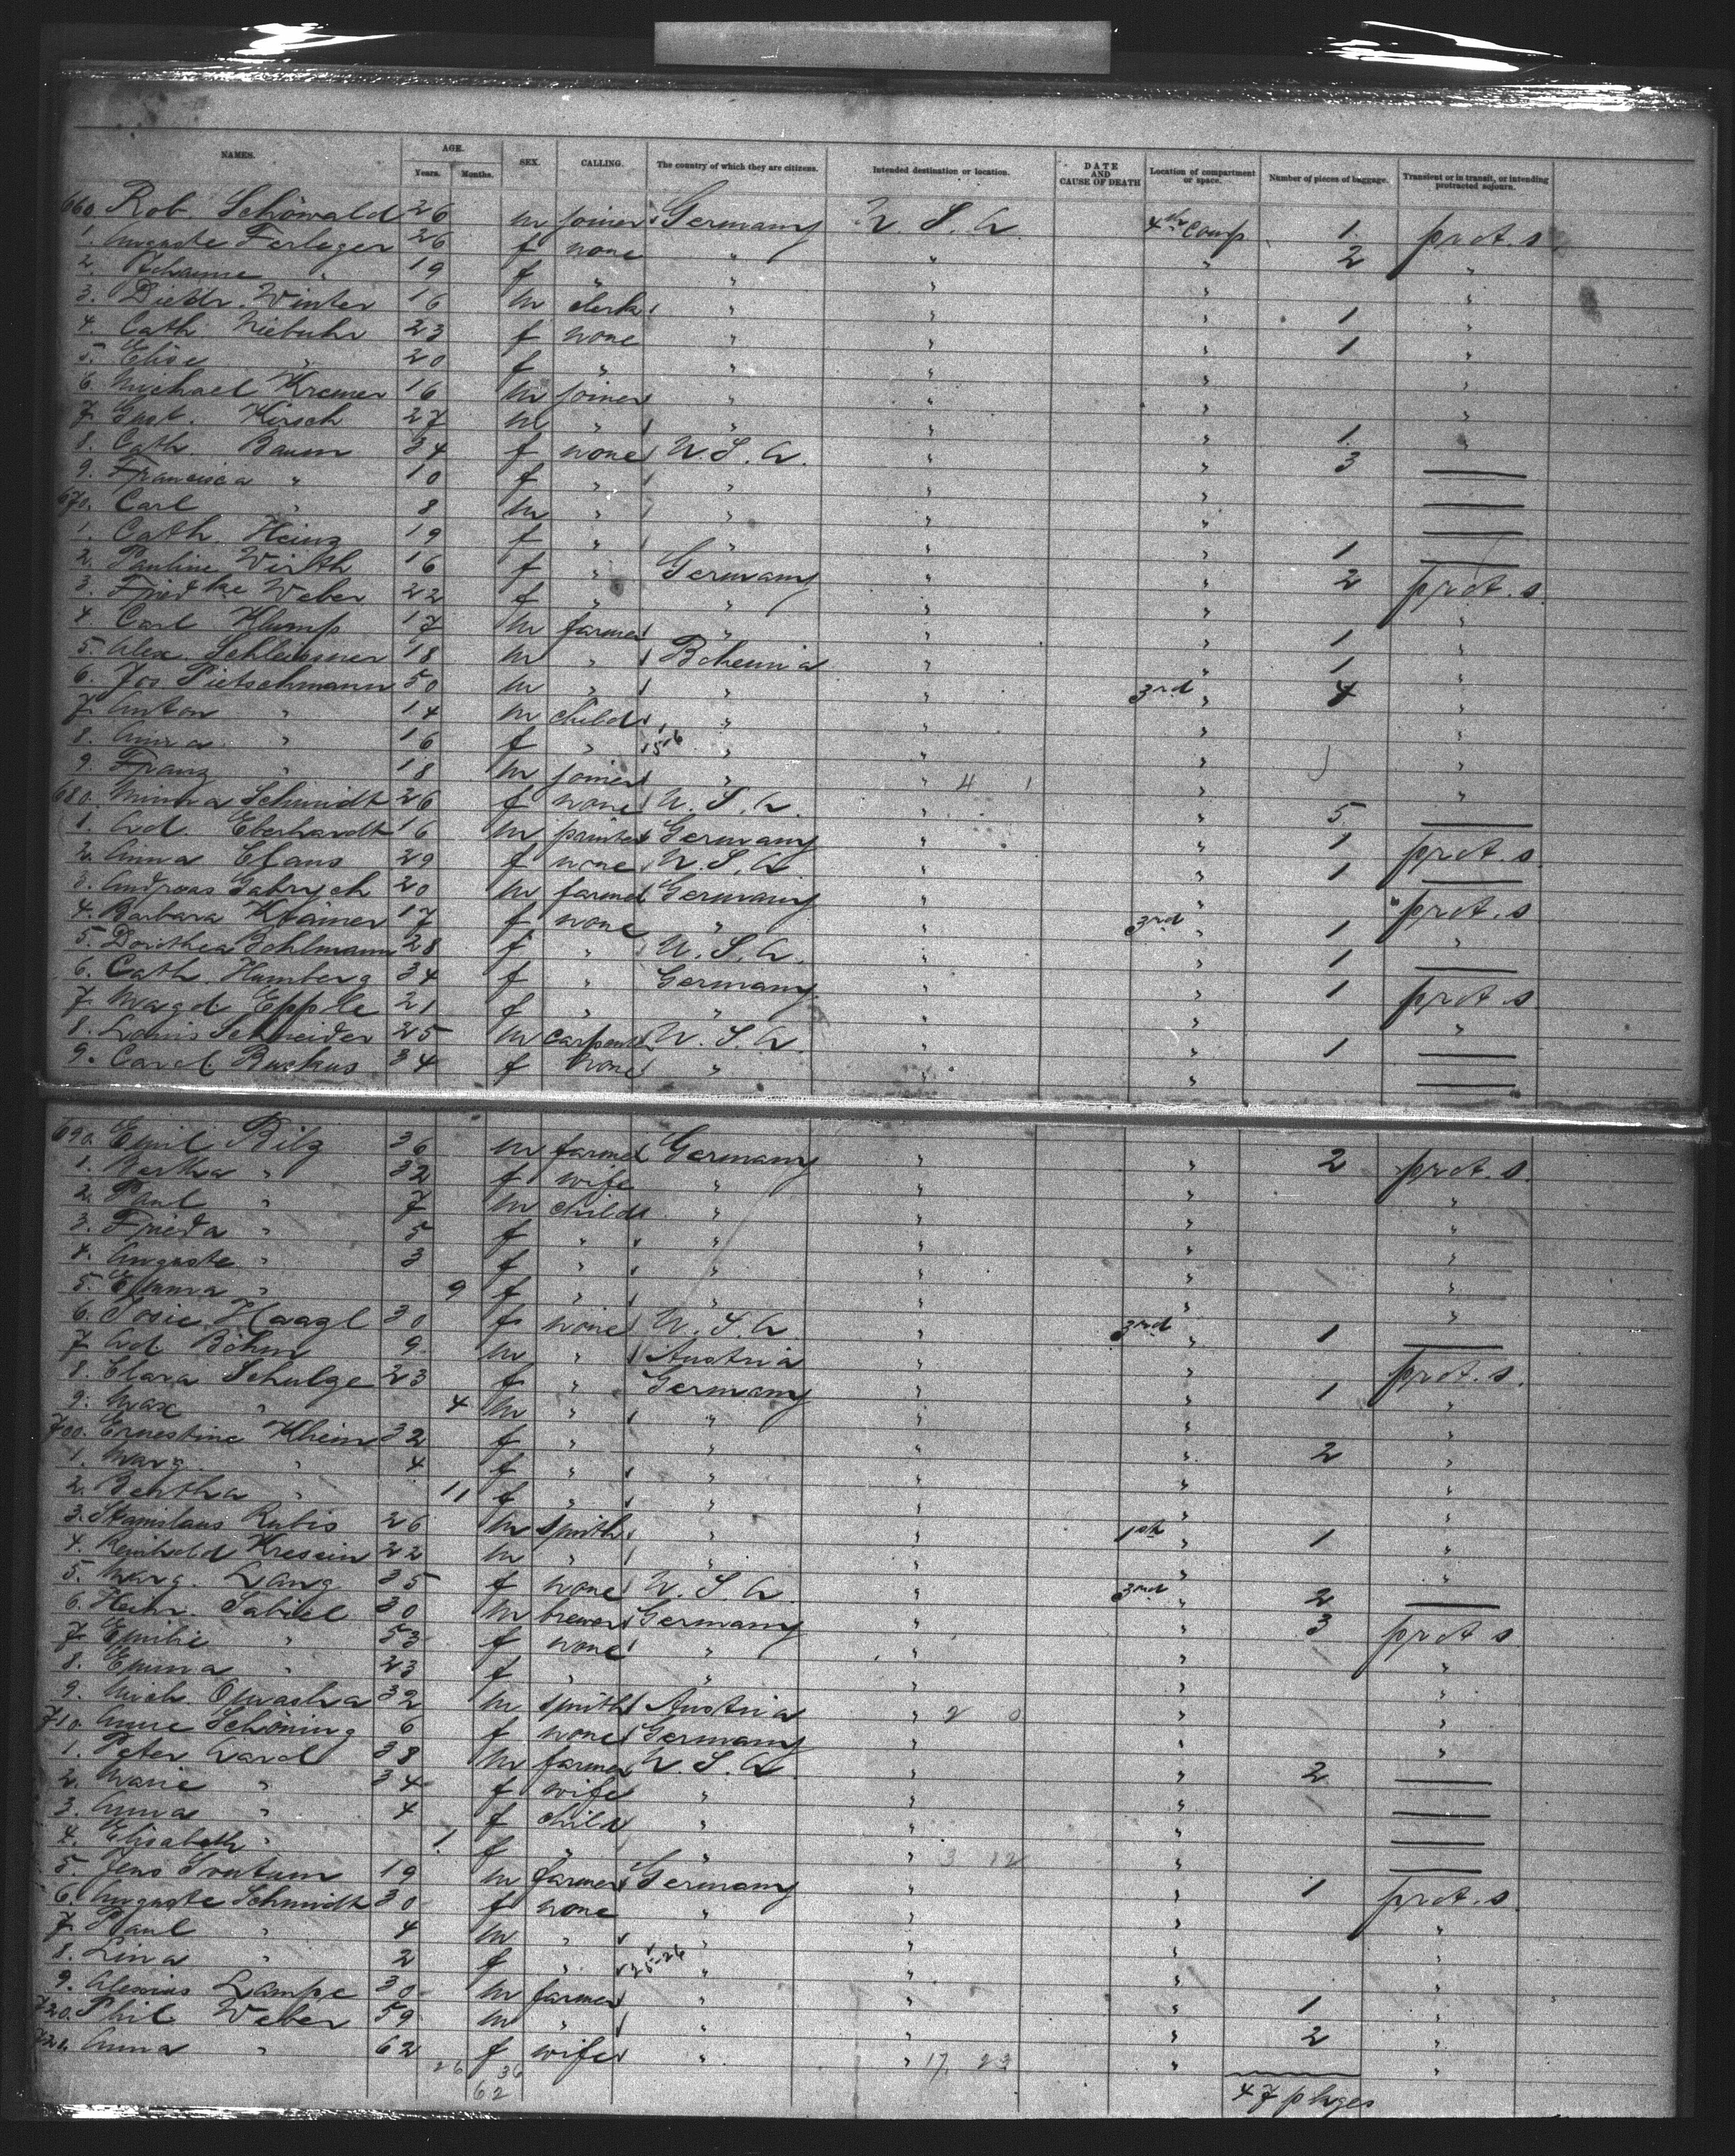 NAMES. AGE. Years. Months. SEX. CALLING. The country of which they are citizens. Intended destination or location. DATE AND CAUSE OF DEATH Location of compartment or space. Number of pieces of baggage. Transient or in transit, or intending protracted sojourn.
660. Rob. Schöwald 26 m joiner Germany U. S. A. 4th Comp. 1 prot. s.
1. Auguste Ferleger 26 f none " " " 2 "
2. " 19 f " " " " "
3. Dietr. Winter 16 m clerk " " " 1 "
4. Cath. Niebuhr 23 f none " " " 1 "
5. Elise " 20 f " " " " "
6. Michael Kremer 16 m joiner " " " "
7. Gust. Hirsch 27 m " " " " 1 "
8. Cath. Baum 34 f none U. S. A. " " 3 —
9. Francisca " 10 f " " " " —
670. Carl " 8 m " " " " —
1. Cath. Heinz 19 f " " " " 1 —
2. Pauline Wirth 16 f " Germany " " 2 prot. s.
3. Friedke Weber 22 f " " " " "
4. Carl Klump 17 m farmer " " " 1 "
5. Alex. Schleissner 18 m " Bohemia " " 1 "
6. Jos. Pietschmann 50 m " " " 3rd " 4 "
7. Anton " 14 m child " " " "
8. Anna " 16 f " 15-16 " " " "
9. Franz " 18 m joiner " " 4 1 " "
680. Minna Schmidt 26 f none U. S. A. " " 5 —
1. Ad. Eberhardt 16 m painter Germany " " 1 prot. s.
2. Anna Claus 29 f none U. S. A. " " 1 —
3. Andreas Gabrych 20 m farmer Germany " " prot. s.
4. Barbara Krämer 17 f none " " 3rd " 1 "
5. Dorothea Bohlmann 28 f " U. S. A. " " 1 —
6. Cath. Humberg 34 f " Germany " " 1 prot. s.
7. Magd. Epple 21 f " " " " "
8. Louis Schneider 25 m carpenter U. S. A. " " 1 —
9. Carol. Buskus 34 f none " " " —
690. Emil Bilz 36 m farmer Germany " " 2 prot. s.
1. Bertha " 32 f wife " " " "
2. Paul " 7 m child " " " "
3. Frieda " 5 f " " " " "
4. Auguste " 3 f " " " " "
5. Emma " 9 f " " " " "
6. Josie Haagl 30 f none U. S. A. " 3rd " 1 —
7. Ad. Böhm 9 m " Austria " " prot. s.
8. Clara Schulze 23 f " Germany " " 1 "
9. Max " 4 m " " " " "
700. Ernestine Klein 32 f " " " " 2 "
1. Marg. " 4 f " " " " "
2. Bertha " 11 f " " " " "
3. Stanislaus Rubis 26 m smith " " 1st " 1 "
4. Reinhold Kresein 22 m " " " " "
5. Marg. Lang 35 f none U. S. A. " 3rd " 2 —
6. Heinr. Sabiel 30 m brewer Germany " " 3 prot. s
7. Emilie " 53 f none " " " "
8. Emma " 23 f " " " " "
9. Mich. 32 m smith Austria " 2 0 " "
710. Anne Schöning 6 f none Germany " " "
1. Peter 38 m farmer U. S. A. " " 2 —
2. Marie " 34 f wife " " " —
3. Anna " 4 f child " " " —
4. Elisabeth " 1 f " " " 3 12 " —
5. Jens 19 m farmer Germany " " 1 prot. s.
6. Auguste Schmidt 30 f none " " " "
7. Paul " 4 m " " " " "
8. Lina " 2 f " 25-26 " " " "
9. Lampe 30 m farmer " " " 1 "
720. Phil. Weber 59 m " " " " 2 "
721. Anna " 62 f wife " " 17 23 " "
26 36
62
47 pkges